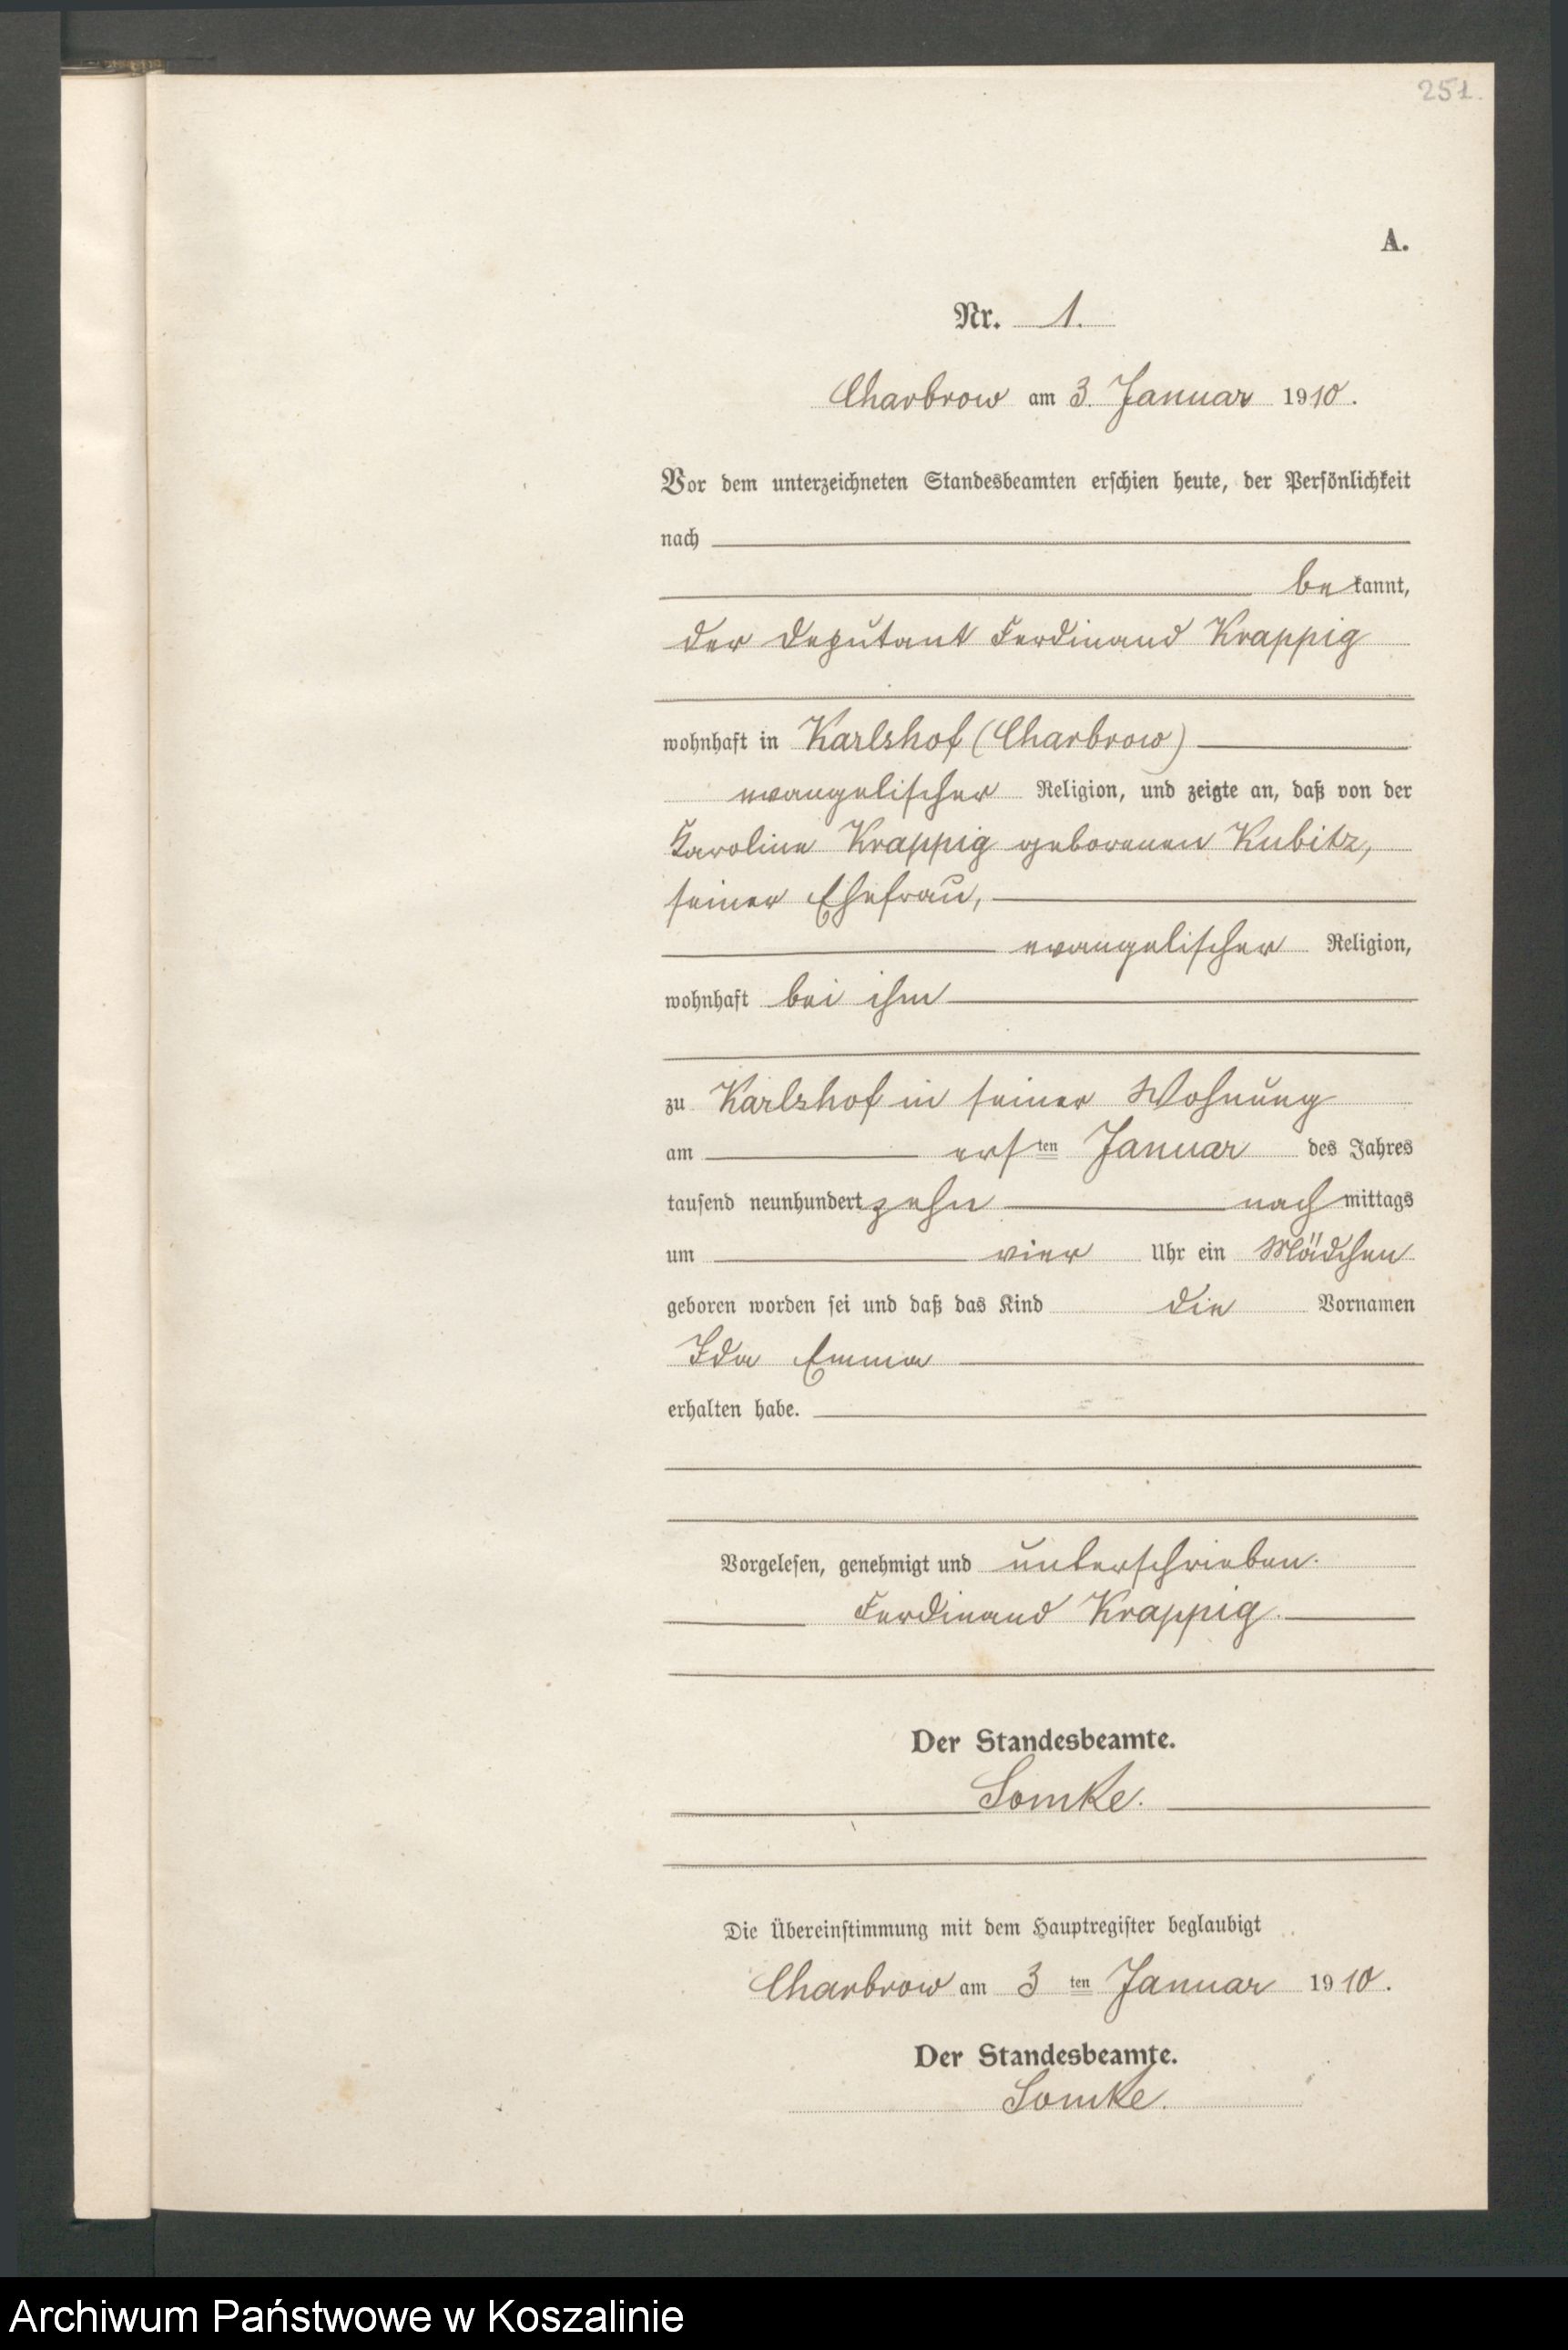 251.
A.
Nr. 1.
Charbrow am 3. Januar 1910.
Vor dem unterzeichneten Standesbeamten erschien heute, der Persönlichkeit
nach
bekannt,
der Deputant Ferdinand Krappig
wohnhaft in Karlshof (Charbrow)
evangelischer Religion, und zeigte an, daß von der
Karoline Krappig geborenen Kubitz,
seiner Ehefrau,
evangelischer Religion,
wohnhaft bei ihm
zu Karlshof in seiner Wohnung
am ersten Januar des Jahres
tausend neunhundert zehn nachmittags
um vier Uhr ein Mädchen
geboren worden sei und daß das Kind die Vornamen
Ida Emma
erhalten habe.
Vorgelesen, genehmigt und unterschrieben.
Ferdinand Krappig.
Der Standesbeamte.
Somke.
Die Übereinstimmung mit dem Hauptregister beglaubigt
Charbrow am 3ten Januar 1910.
Der Standesbeamte.
Somke.
Archiwum Państwowe w Koszalinie